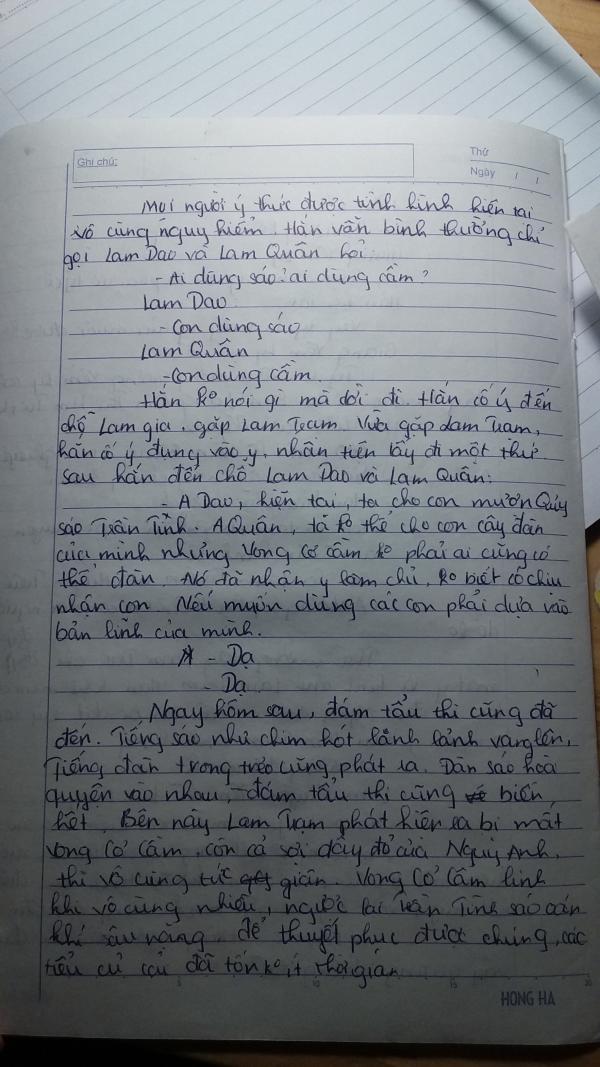 Ghi chú:
Thứ
Ngày / /
Mọi người ý thức được tình hình hiện tại
vô cùng nguy hiểm. Hắn vẫn bình thường chỉ
gọi Lam Dao và Lam Quân hỏi:
- Ai dùng sáo? ai dùng cầm?
Lam Dao
- Con dùng sáo
Lam Quân
- Con dùng cầm.
Hắn ko nói gì mà dời đi. Hắn cố ý đến
chỗ Lam gia, gặp Lam Trạm. Vừa gặp Lam Trạm,
hắn cố ý đụng vào y, nhân tiện lấy đi một thứ
sau hắn đến chỗ Lam Dao và Lam Quân:
- A Dao, hiện tại, ta cho con mượn Quỷ
sáo Trần Tình. A Quân, tả ko thể cho con cây đàn
của mình nhưng Vong Cơ cầm ko phải ai cũng có
thể đàn. Nó đã nhận y làm chủ, ko biết có chịu
nhận con. Nếu muốn dùng các con phải dựa vào
bản lĩnh của mình.
- Dạ
- Dạ
Ngay hôm sau, đám tẩu thi cũng đã
đến. Tiếng sáo như chim hót lảnh lảnh vang lên,
Tiếng đàn trong trẻo cũng phát ra. Đàn sáo hoà
quyện vào nhau, đám tẩu thi cũng biến
hết. Bên này Lam Trạm phát hiện ra bị mất
Vong Cơ Cầm, còn cả sợi dây đỏ của Nguỵ Anh,
thì vô cùng tức giận. Vong Cơ Cầm linh
khí vô cùng nhiều, ngược lại Trần Tình sáo oán
khí sâu nặng. để thuyết phục được chúng, các
tiểu củ cải đã tốn ko ít thời gian
5 10 15 20
HONG HA